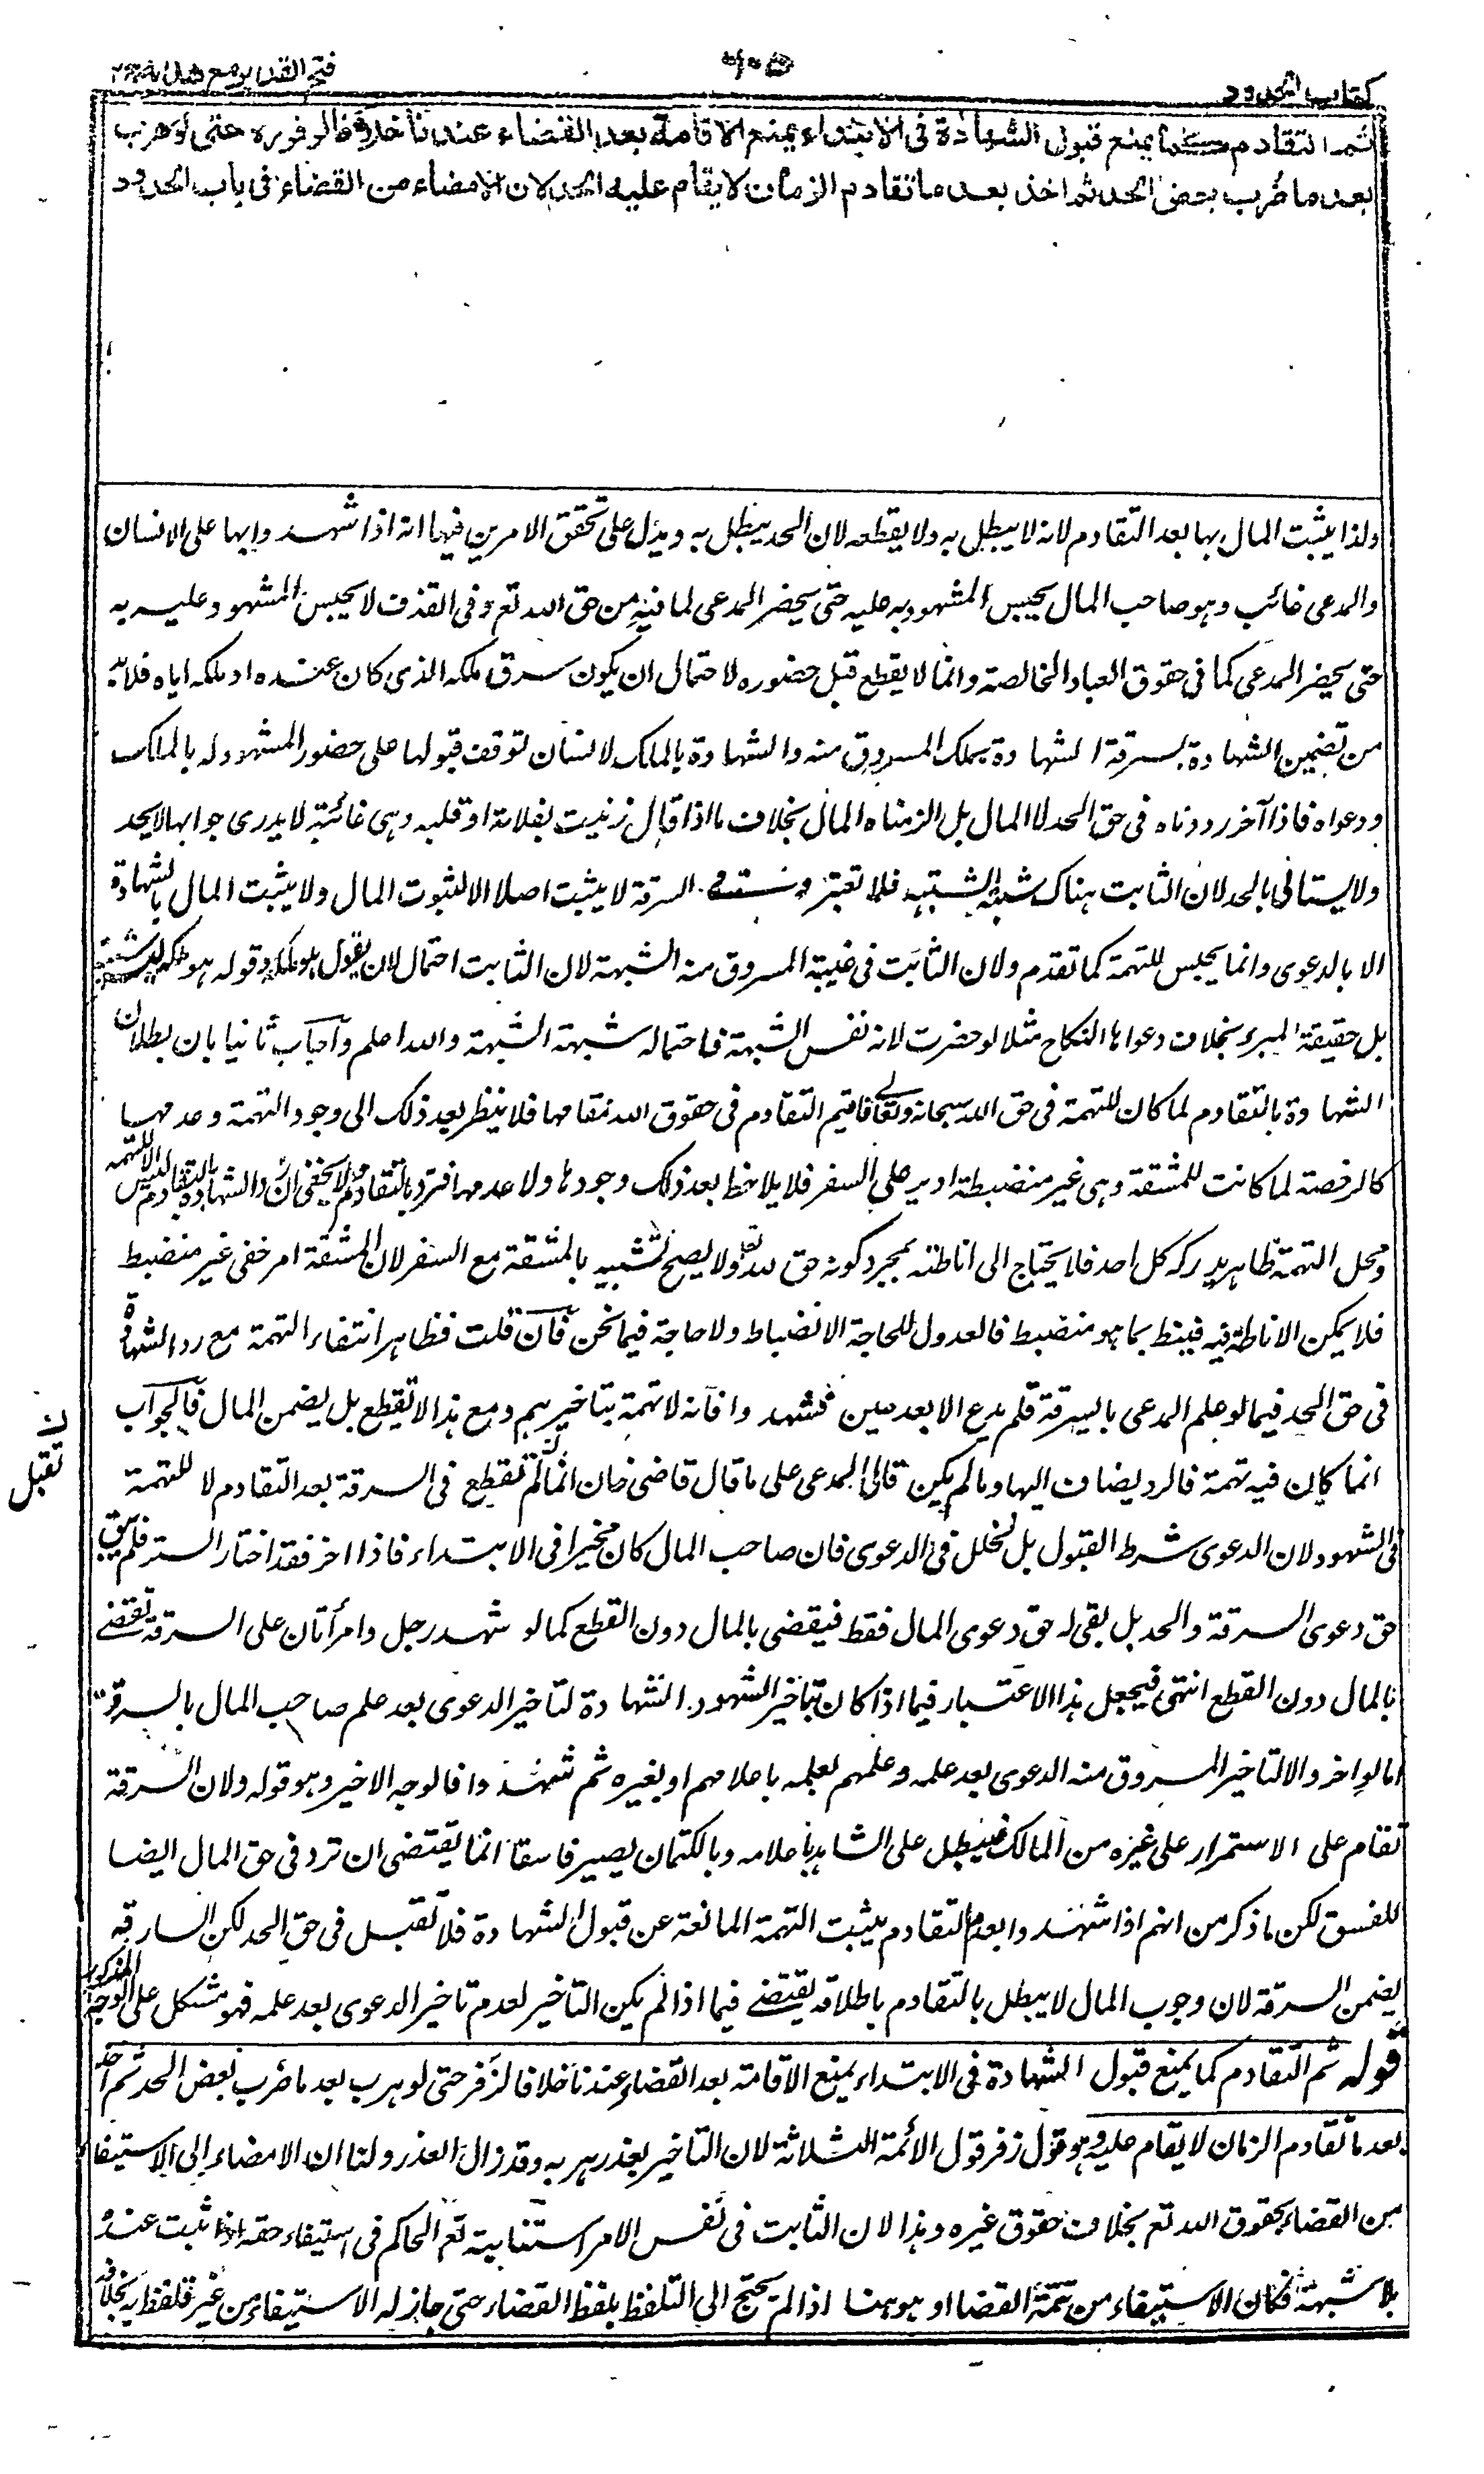 كتاب الحدود
فتح القدير مع هداية ج٢
ثم التقادم كما يمنع قبول الشهادة فى الابتداء يمنع الاقامة بعد القضاء عندنا خلافا لزفر حتى لو هرب
بعد ما ضرب بعض الحد ثم اخذ بعد ما تقادم الزمان لا يقام عليه الحد لان الامضاء من القضاء فى باب الحدود
ولذا يثبت المال بها بعد التقادم لانه لا يبطل به ولا يقطعه لان الحد يبطل به ويدل على تحقق الامرين فيها انه اذا شهدوا بها على الانسان
والمدعى غائب وهو صاحب المال يحبس المشهود به عليه حتى يحضر المدعى لما فيه من حق الله تع وفى القذف لا يحبس المشهود عليه به
حتى يحضر المدعى كما فى حقوق العباد الخالصة وانما لا يقطع قبل حضوره لاحتمال ان يكون سرق ملكه الذى كان عنده او ملكه اياه فلا بد
من تضمين الشهادة بالسرقة الشهادة بملك المسروق منه والشهادة بالملك لانسان توقف قبولها على حضور المشهود له بالملك
ودعواه فاذا آخر رددناه فى حق الحد لا المال بل الزمناه المال بخلاف ما اذا قال زنيت بفلانة او قلبه وهى غائبة لا يدرى جوابها لا يحد
ولا يستانى بالحد لان الثابت هناك شبهة الشبهة فلا تعتبر و السرقة لا يثبت اصلا الا لثبوت المال ولا يثبت المال بالشهادة
الا بالدعوى وانما يحبس للتهمة كما تقدم ولان الثابت فى غيبة المسروق منه الشبهة لان الثابت احتمال ان يقول هو ملكه وقوله هو ملكه ليس شبهة
بل حقيقة المبرئ بخلاف دعواها النكاح مثلا لو حضرت لانه نفس الشبهة فاحتماله شبهة الشبهة والله اعلم وآجاب ثانيا بان بطلان
الشهادة بالتقادم لما كان للتهمة فى حق الله سبحانه وتعالى فاقيم التقادم فى حقوق الله مقامها فلا ينظر بعد ذلك الى وجود التهمة وعدمها
كالرخصة لما كانت للمشقة وهى غير منضبطة ادير على السفر فلا يلاحظ بعد ذلك وجودها ولا عدمها فترد بالتقادم ولا يخفى ان رد الشهادة بالتقادم ليس الا للتهمة
ومحل التهمة ظاهر يدركه كل احد فلا يحتاج الى اناطته بمجرد كونه حق لله تعالى ولا يصح تشبيه بالمشقة مع السفر لان المشقة امر خفى غير منضبط
فلا يمكن الاناطة فيه فينط بما هو منضبط فالعدول للحاجة الانضباط ولا حاجة فيما نحن فآن قلت فظاهر انتفاء التهمة مع رد الشهادة
فى حق الحد فيما لو علم المدعى بالسرقة فلم يدع الا بعد حين فشهدوا فانه لا تهمة بتاخيرهم ومع هذا لا تقطع بل يضمن المال فآلجواب
انما كان فيه تهمة فالرد يضاف اليها وما لم يكن فالى المدعى على ما قال قاضى خان انما لم تقطع فى السرقة بعد التقادم لا للتهمة
فى الشهود لان الدعوى شرط القبول بل لخلل فى الدعوى فان صاحب المال كان مخيرا فى الابتداء فاذا اخر فقد اختار الستر فلم يبق
حق دعوى السرقة والحد بل بقى له حق دعوى المال فقط فيقضى بالمال دون القطع كما لو شهد رجل وامرأتان على السرقة تقضى
بالمال دون القطع انتهى فيجعل هذا الاعتبار فيما اذا كان تاخير الشهود الشهادة لتاخير الدعوى بعد علم صاحب المال بالسرقة
اما لو اخروا لا لتاخير المسروق منه الدعوى بعد علمه وعلمهم لعلمه باعلامهم او بغيره ثم شهدوا فالوجه الاخير وهو قوله ولان السرقة
تقام على الاستمرار على غرة من المالك فيبطل على الشاهد باعلامه وبالكتمان يصير فاسقا انما يقتضى ان ترد فى حق المال ايضا
للفسق لكن ما ذكر من انهم اذا شهدوا بعد التقادم يثبت التهمة المانعة عن قبول الشهادة فلا تقبل فى حق الحد لكن السارق
يضمن السرقة لان وجوب المال لا يبطل بالتقادم باطلاقه يقتضى فيما اذا لم يكن التاخير لعدم تاخير الدعوى بعد علمه فهو مشكل على الوجه المذكور
قوله ثم التقادم كما يمنع قبول الشهادة فى الابتداء يمنع الاقامة بعد القضاء عندنا خلافا لزفر حتى لو هرب بعد ما ضرب بعض الحد ثم اخذ
بعد ما تقادم الزمان لا يقام عليه وهو قول زفر قول الائمة الثلاثة لان التاخير بعذر هربه وقد زال العذر ولنا ان الامضاء الى الاستيفاء
من القضاء بحقوق الله تع بخلاف حقوق غيره وهذا لان الثابت فى نفس الامر استنابته تع الحاكم فى استيفاء حقه اذا ثبت عنده
بلا شبهة فكان الاستيفاء من تتمة القضاء او هو هنا اذا لم يحتج الى التلفظ بلفظ القضاء حتى جاز له الاستيفاء من غير تلفظ به بخلاف
ن
تقبل